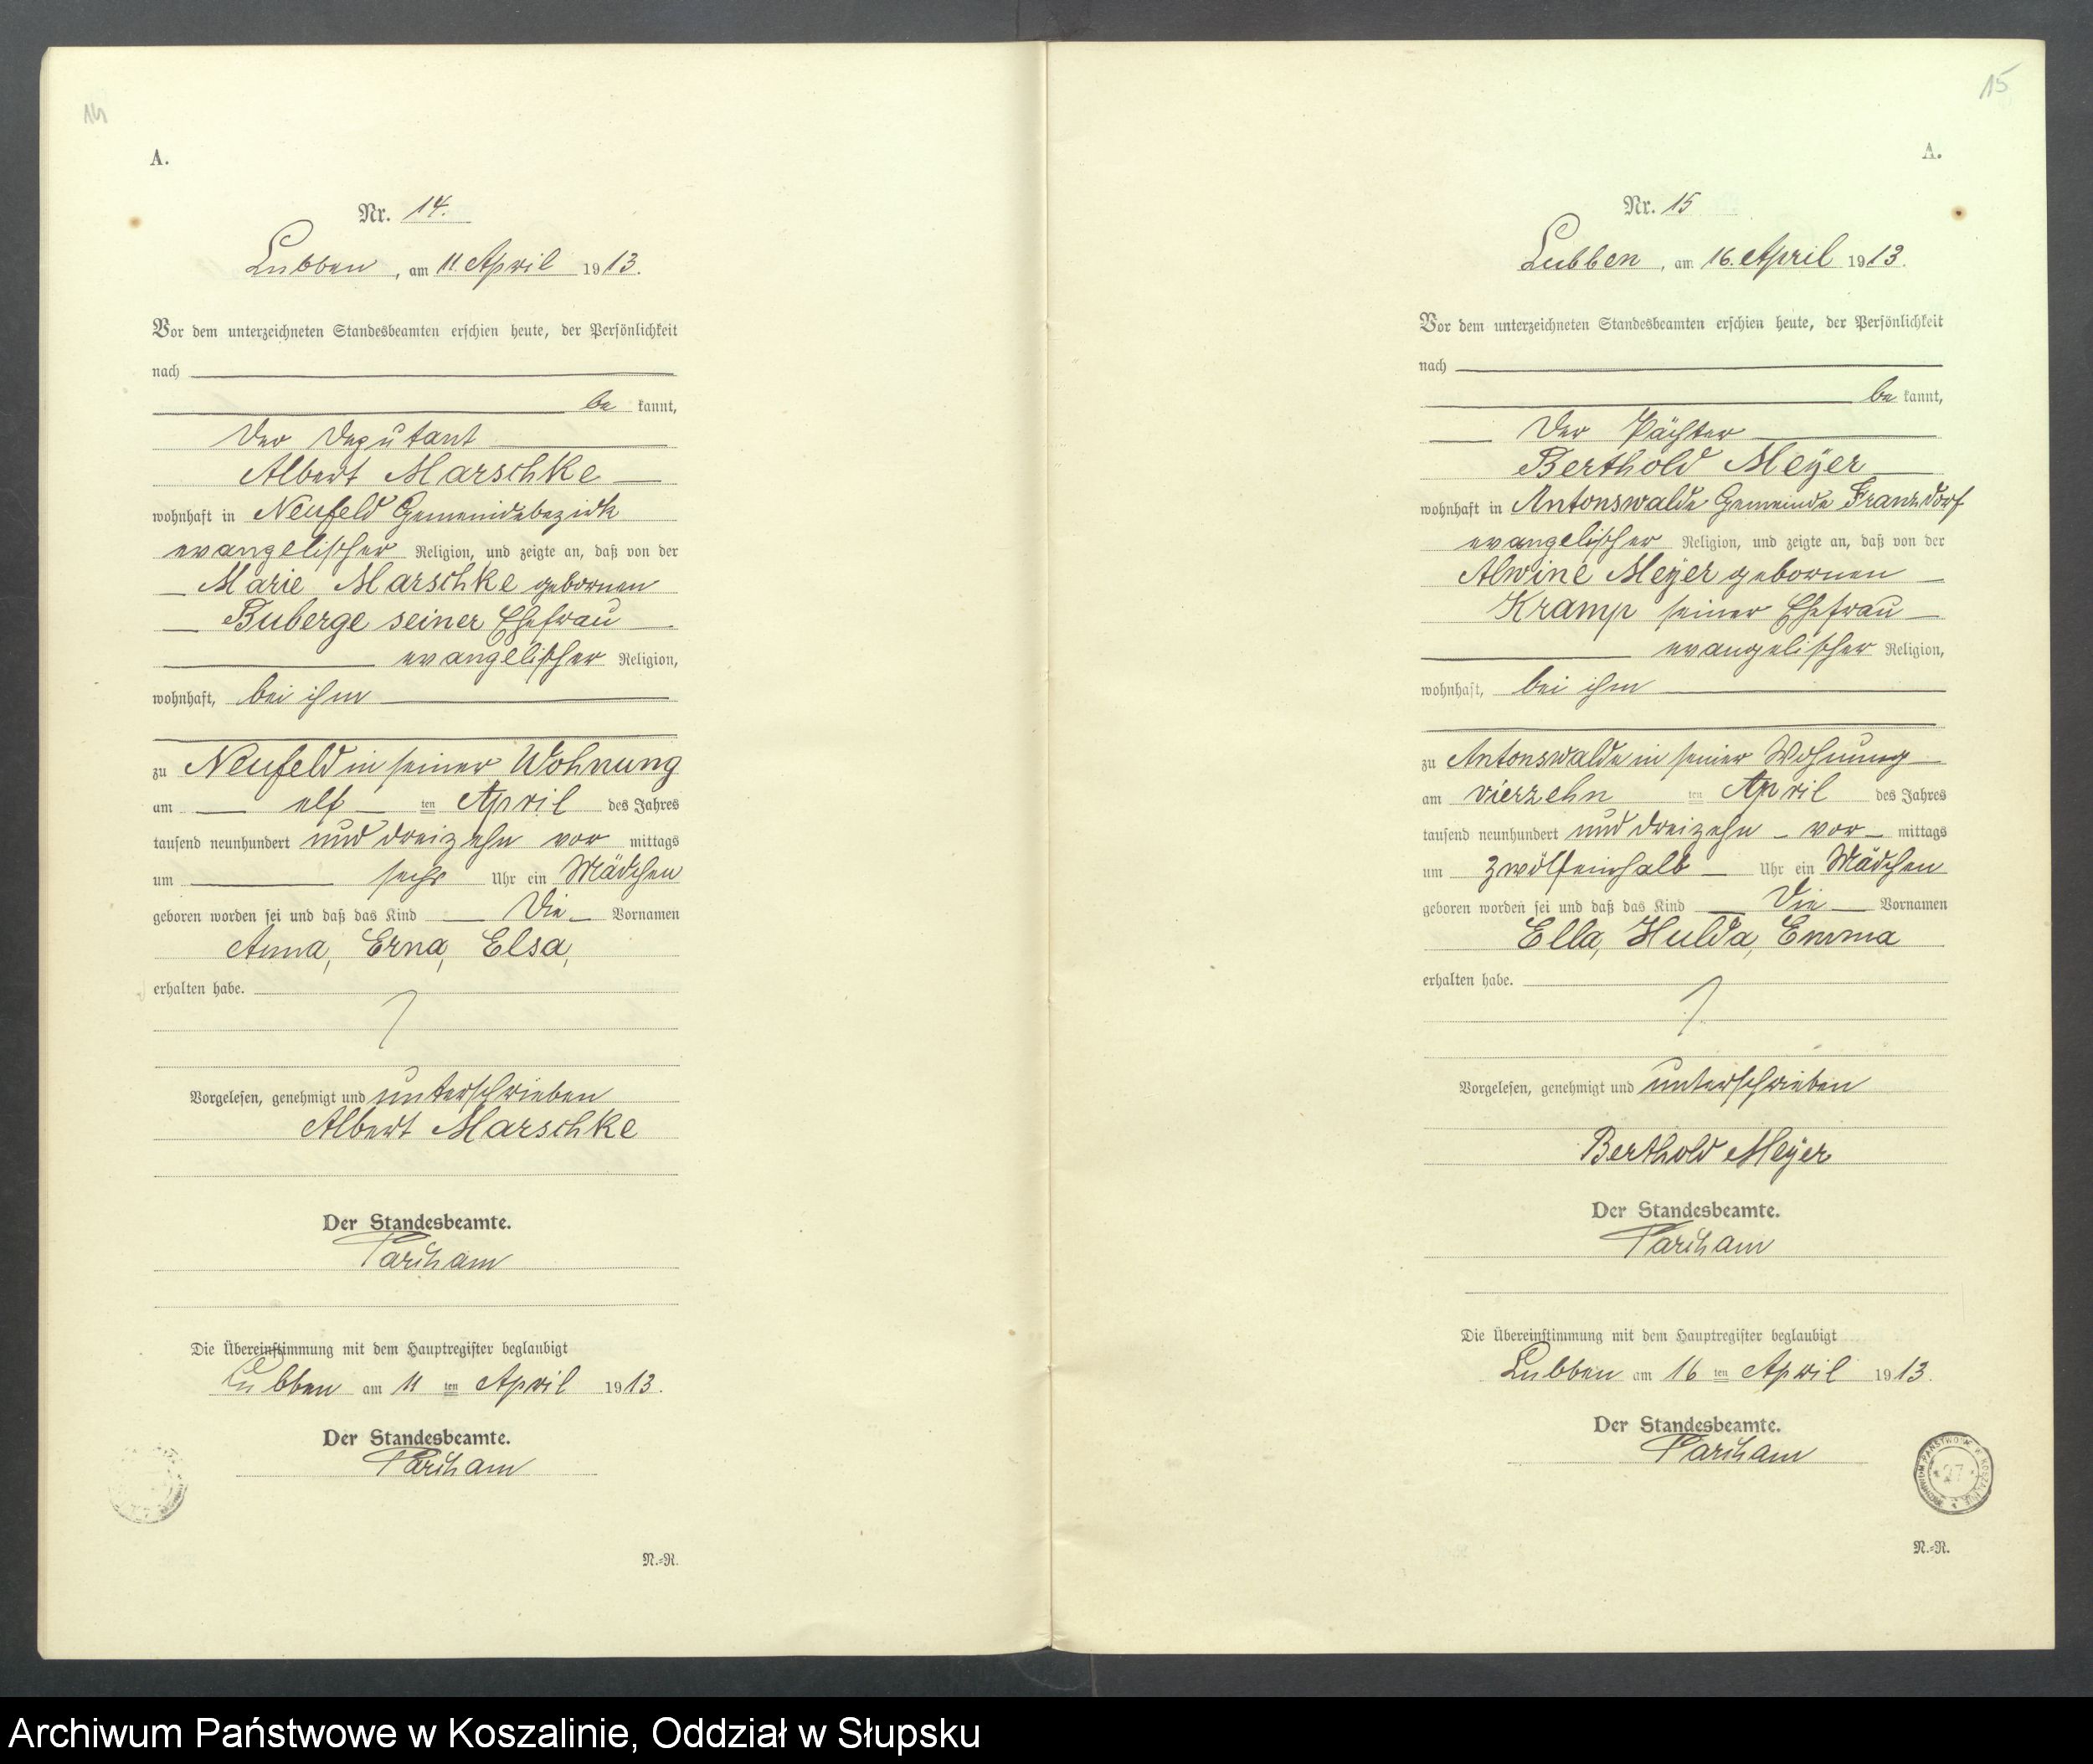 14
A.
Nr. 14.
Lubben, am 11. April 1913.
Vor dem unterzeichneten Standesbeamten erschien heute, der Persönlichkeit
nach
be kannt,
der Deputant
Albert Marschke
wohnhaft in Neufeld Gemeindebezirk
evangelischer Religion, und zeigte an, daß von der
Marie Marschke gebornen
Buberge seiner Ehefrau
evangelischer Religion,
wohnhaft, bei ihm
zu Neufeld in seiner Wohnung
am elf ten April des Jahres
tausend neunhundert und dreizehn vor mittags
um sechs Uhr ein Mädchen
geboren worden sei und daß das Kind die Vornamen
Anna, Erna, Elsa,
erhalten habe.
Vorgelesen, genehmigt und unterschrieben
Albert Marschke
Der Standesbeamte.
Parcham
Die Übereinstimmung mit dem Hauptregister beglaubigt
Lubben am 11 ten April 1913.
Der Standesbeamte.
Parcham
N.=R.
15
A.
Nr. 15
Lubben, am 16. April 1913.
Vor dem unterzeichneten Standesbeamten erschien heute, der Persönlichkeit
nach
be kannt,
der Pächter
Berthold Meÿer
wohnhaft in Antonswalde Gemeinde Franzdorf
evangelischer Religion, und zeigte an, daß von der
Alwine Meÿer gebornen
Kramp seiner Ehefrau
evangelischer Religion,
wohnhaft, bei ihm
zu Antonswalde in seiner Wohnung
am vierzehn ten April des Jahres
tausend neunhundert und dreizehn vor mittags
um zwölfeinhalb Uhr ein Mädchen
geboren worden sei und daß das Kind die Vornamen
Ella, Hulda, Emma
erhalten habe.
Vorgelesen, genehmigt und unterschrieben
Berthold Meÿer
Der Standesbeamte.
Parcham
Die Übereinstimmung mit dem Hauptregister beglaubigt
Lubben am 16 ten April 1913.
Der Standesbeamte.
Parcham
ARCHIWUM PAŃSTWOWE W KOSZALINIE
27
N.=R.
Archiwum Państwowe w Koszalinie, Oddział w Słupsku